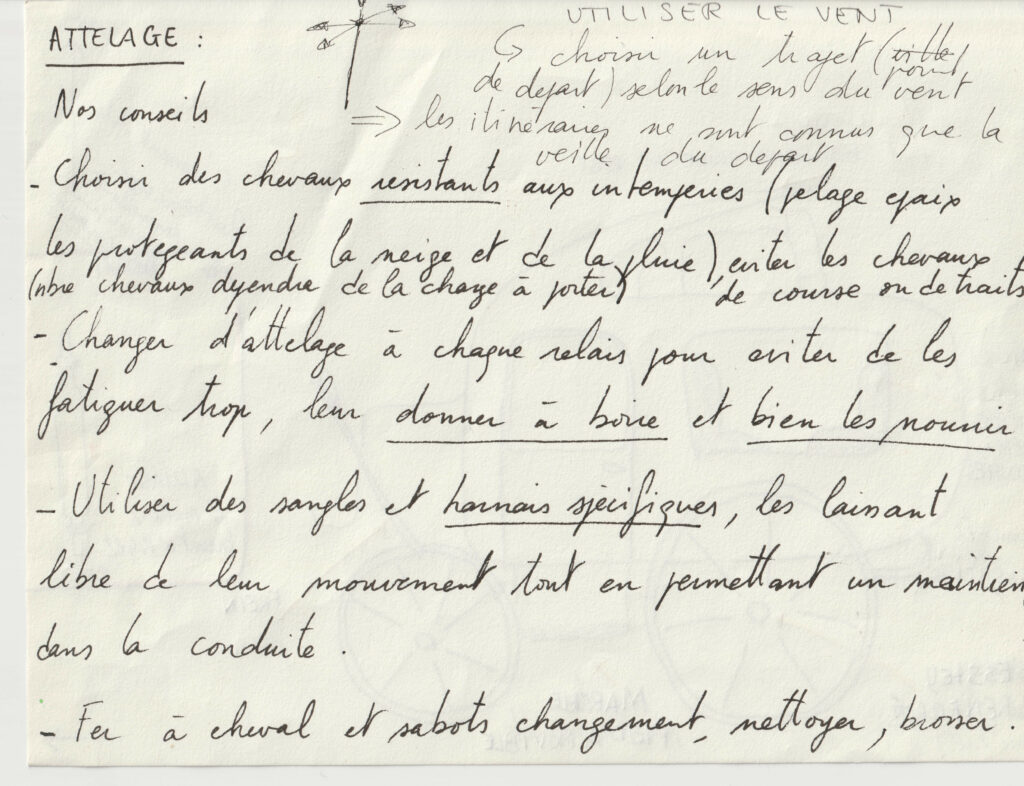 ATTELAGE :
UTILISER LE VENT
↳ choisir un trajet (ville point
de depart) selon le sens du vent
⇒ les itinéraires ne sont connus que la
veille du depart
Nos conseils
- Choisir des chevaux resistants aux intemperies (pelage epaix
les protegeants de la neige et de la pluie), eviter les chevaux
de course ou de traits
(nbre chevaux dependra de la charge à porter)
- Changer d'attelage à chaque relais pour eviter de les
fatiguer trop, leur donner à boire et bien les nourrir
- Utiliser des sangles et harnais spécifiques, les laissant
libre de leur mouvement tout en permettant un maintien
dans la conduite.
- Fer à cheval et sabots changement, nettoyer, brosser.